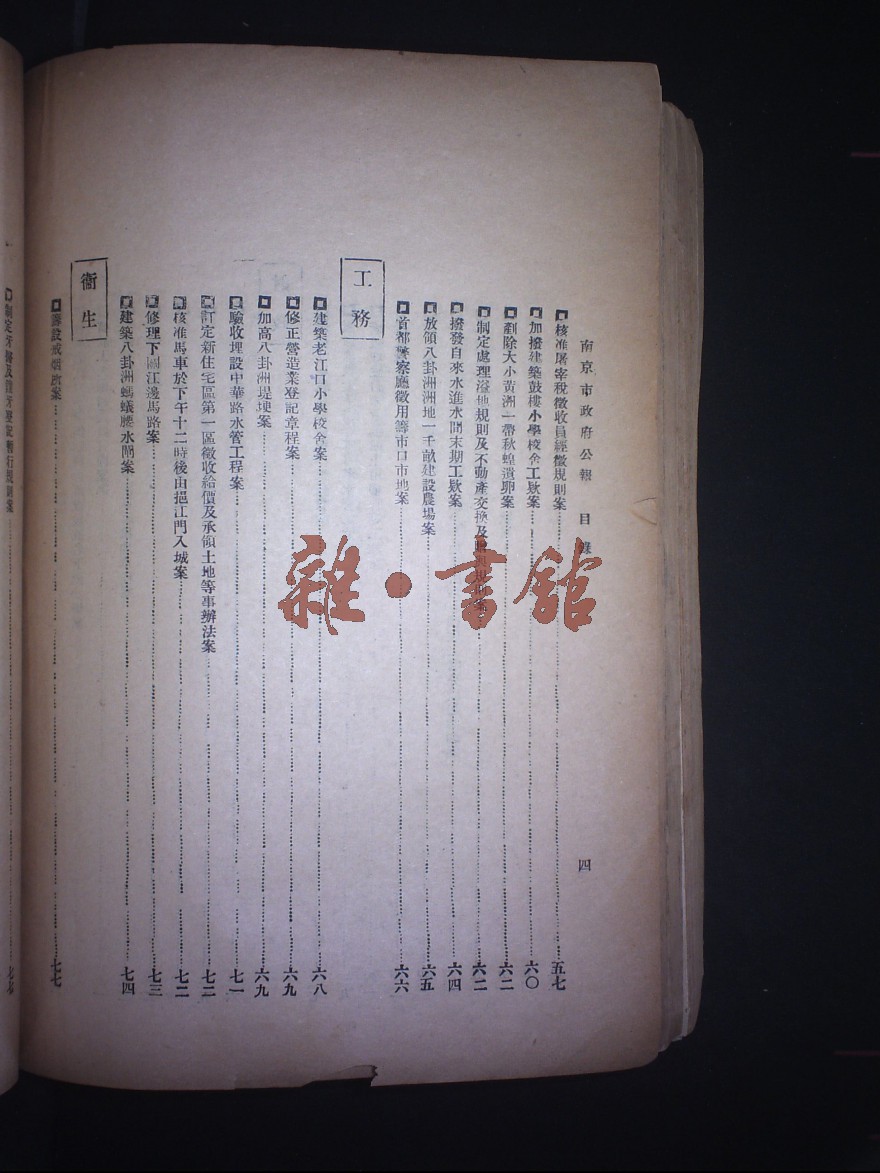 南京市政府公報 目錄 四
核准屠宰稅徵收員經徵規則案 五七
加撥建築鼓樓小學校舍工欵案 六〇
剷除大小黃洲一帶秋蝗遺卵案 六二
制定處理溢地規則及不動產交換及 六二
撥發自來水進水閘末期工欵案 六四
放領八卦洲洲地一千畝建設農場案 六五
首都警察廳徵用籌市口市地案 六六
工務
建築老江口小學校舍案 六八
修正營造業登記章程案 六九
加高八卦洲堤埂案 六九
驗收埋設中華路水管工程案 七一
訂定新住宅區第一區徵收給價及承領土地等事辦法案 七二
核准馬車於下午十二時後由挹江門入城案 七二
修理下關江邊馬路案 七三
建築八卦洲螞蟻腰水閘案 七四
衞生
籌設戒烟所案 七七
制定牙醫及鑲牙登記暫行規則案 七七
雜·書舘